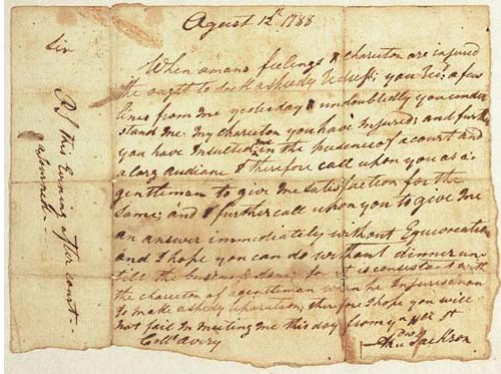 Agust 12th 1788
Sir
When amans feelings & charector are injured
he ought to seek aspeedy redress; you recd. a few
lines from me yesterday & undoubtedly you under
stand me. My charector you have Injured; and further
you have Insulted me in the presence of a court and
a larg audiance I therefore call upon you as a
gentleman to give me satisfaction for the
same; and I further call upon you to give me
an answer immediately without Equivocation
and I hope you can do without dinner un
till the business done; for it is consistant with
the charector of agentleman when he Injures aman
to make aspedy reparation; therefore I hope you will
not fail in meeting me this day from yr. Hbl. St
Coll. Avery
Andw. Jackson
P.S. This Evening after court
adjourned